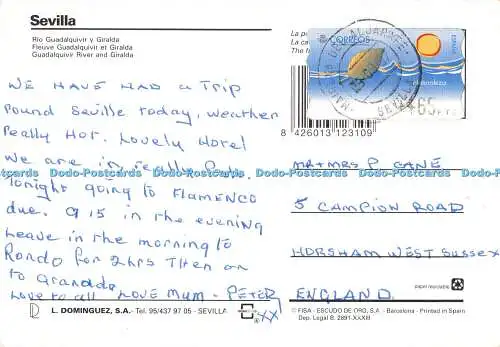 Sevilla
Río Guadalquivir y Giralda
Fleuve Guadalquivir et Giralda
Guadalquivir River and Giralda
WE HAVE HAD a Trip
round Seville today, weather
really Hot. Lovely Hotel
we are in, really
Tonight going to FLAMENCO
due. 9 15 in the evening
Leave in the morning to
Rondo for 2 hrs Then on
to Granada
Love to all LOVE Mum - PETER
XX
CORREOS
ESPAÑA
65 PTS
8 426013 123109
MR + MRS P CANE
5 CAMPION ROAD
HORSHAM WEST SUSSEX
ENGLAND
Dodo-Postcards Dodo-Postcards Dodo-Postcards Dodo-Postcards Dodo-Postcards
L. DOMINGUEZ, S.A. - Tel. 95/437 97 05 - SEVILLA
© FISA - ESCUDO DE ORO, S.A. - Barcelona - Printed in Spain
Dep. Legal B. 2891-XXXIII